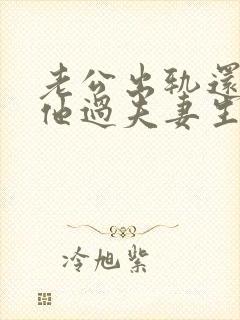 老公出轨還
他過夫妻生
冷旭紫